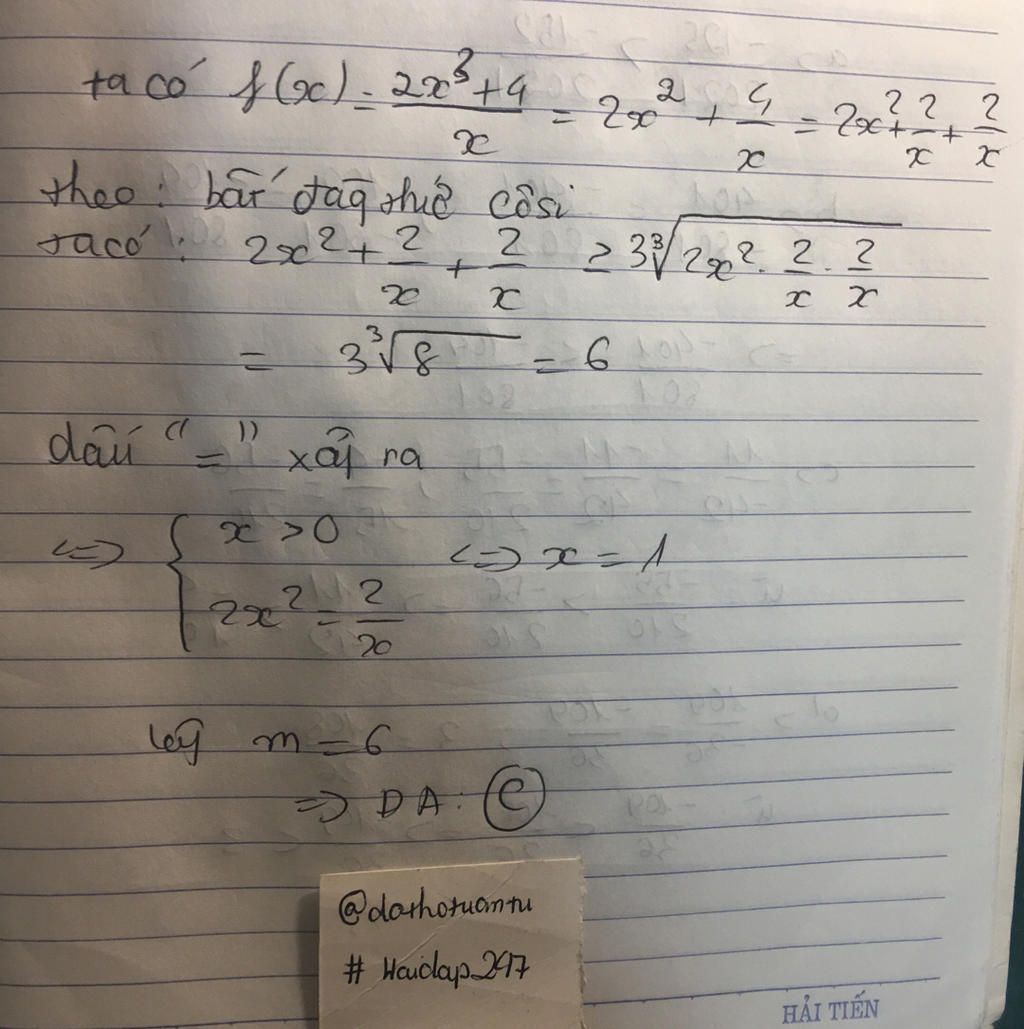 ta có f(x) = \frac{2x^3+4}{x} = 2x^2 + \frac{4}{x} = 2x^2 + \frac{2}{x} + \frac{2}{x}
theo: bất đẳg thức côsi
ta có: 2x^2 + \frac{2}{x} + \frac{2}{x} ≥ 3\sqrt[3]{2x^2 \cdot \frac{2}{x} \cdot \frac{2}{x}}
= 3\sqrt[3]{8} = 6
dấu "=" xảy ra
<=> { x > 0
2x^2 = \frac{2}{x} <=> x = 1
Vậy m = 6
=> DA: C
@dathotuantu
# Hoidap_247
HẢI TIẾN